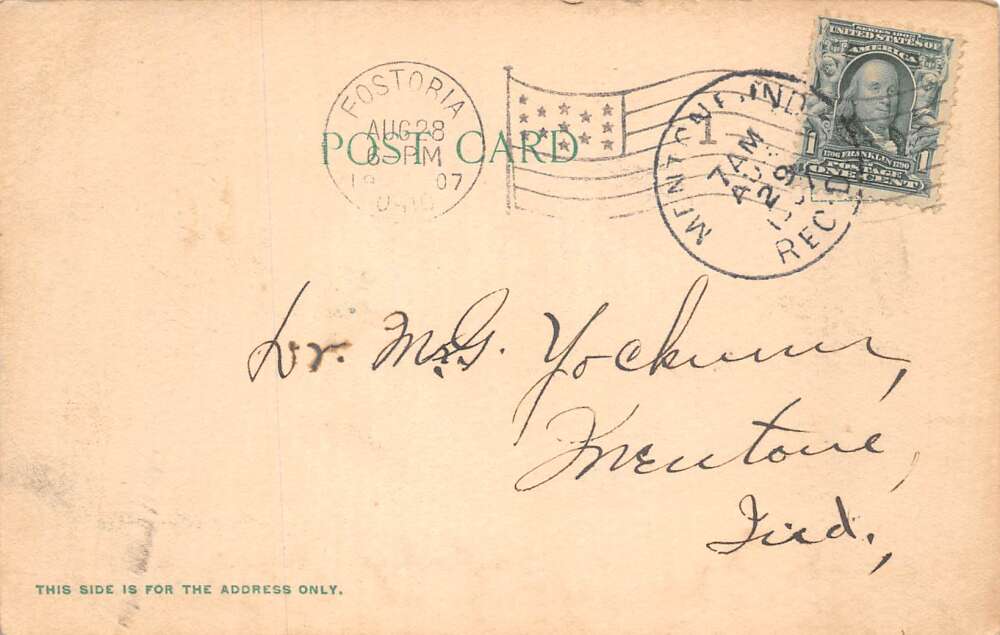 SERIES 1902
UNITED STATES OF
AMERICA
1 1706 FRANKLIN 1790 1
POSTAGE
ONE CENT
FOSTORIA
AUG 28
6 PM
19 07
OHIO
1
MENTONE, IND.
7 AM
AUG
29
1907
REC'D
POST CARD
Dr. M. G. Yockum,
Mentone,
Ind.,
THIS SIDE IS FOR THE ADDRESS ONLY.